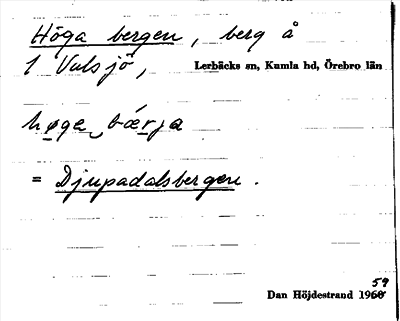 Höga bergen, berg å
1 Vulsjö, Lerbäcks sn, Kumla hd, Örebro län
høga bǽrja
= Djupadalsbergen.
59
Dan Höjdestrand 1960